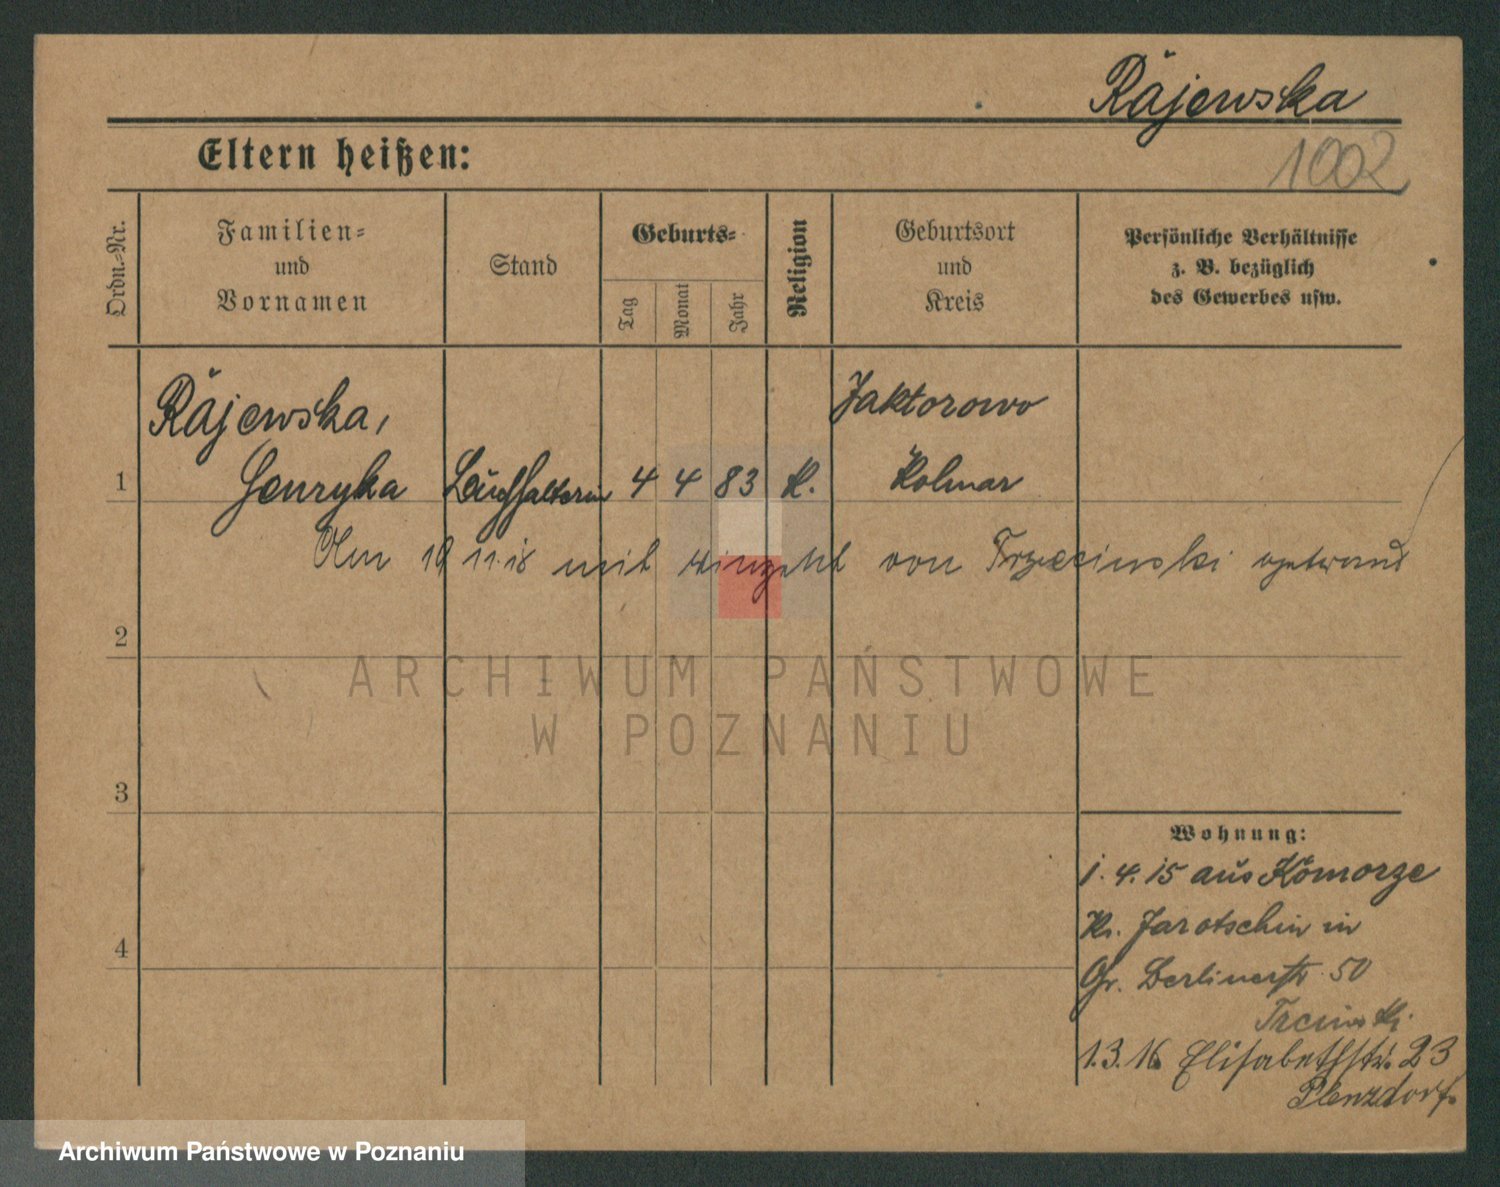 Räjewska
1002
Eltern heißen:
Ordn.-Nr.
Familien-
und
Vornamen
Stand
Geburts-
Tag
Monat
Jahr
Religion
Geburtsort
und
Kreis
Persönliche Verhältnisse
z. B. bezüglich
des Gewerbes usw.
Räjewska,
Jaktorowo
1 Henryka Buchhalterin 4 4 83 K. Kolmar
19 11. 18 mit von Trzecinski
2
ARCHIWUM PAŃSTWOWE
W POZNANIU
3
Wohnung:
1. 4. 15 aus Komorze
Kr. Jarotschin in
4
Gr. Berlinerstr. 50
1.3.16 Elisabethstr. 23
Plenzdorf
Archiwum Państwowe w Poznaniu